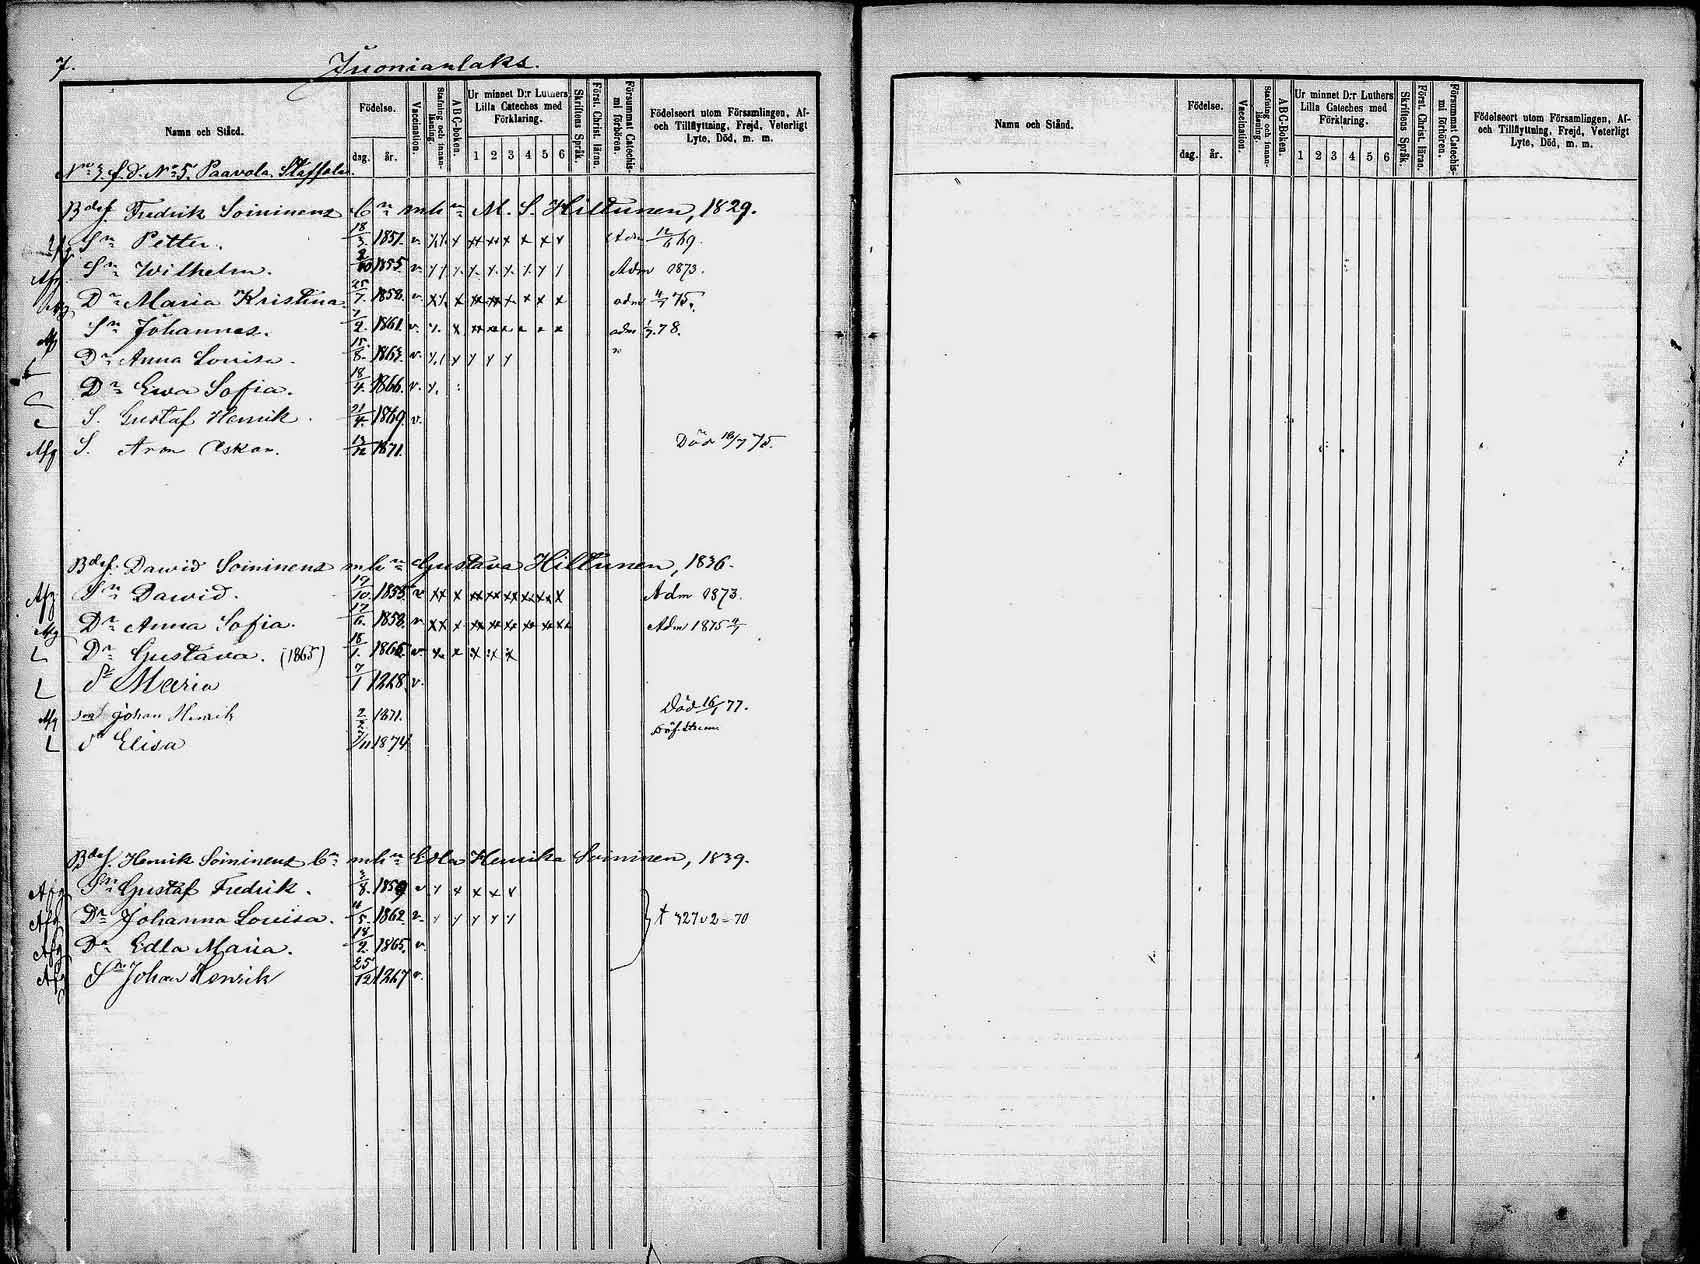 7. Juonianlaks.
Namn och Stånd. Födelse. dag. år. Vaccination. Stafning och innanläsning. ABC-boken. Ur minnet D:r Luthers Lilla Cateches med Förklaring. 1 2 3 4 5 6 Skriftens Språk. Först. Christ. läran. Försummat Catechismi förhören. Födelseort utom Församlingen, Af- och Tillflyttning, Frejd, Veterligt Lyte, Död, m. m.
No 3. f.d. No 5. Paavola. Staffola.
Bdsf. Fredrik Soininens bn mhn M. S. Hiltunen, 1829.
Afg Sn Petter. 18/3 1851. v. Adm 69.
Afg Sn Wilhelm. 2/10 1855 v. Adm 1873.
Afg Dr Maria Kristina 25/7 1858. v. adm 75.
Afg Sn Johannes. 7/2. 1861. v. adm 78.
L Dr Anna Louisa. 15/8. 1863. v.
Dr Ewa Sofia. 18/4. 1866. v.
S. Gustaf Henrik. 21/4. 1869. v.
Afg S. Aron Oskar. 13/12 1871. Död 18/7 75.
Bdsf. Dawid Soininens mhn Gustava Hiltunen, 1836.
Afg Sn Dawid. 17/10. 1855. v Adm 1873.
Afg Dr Anna Sofia. 17/6. 1858. v. Adm 1875
L Dr Gustava. (1865) 18/1. 1866. v.
L Dr Maria 7/1 1868 v.
Afg son Johan Henrik 2/2 1871. Död 16/1 77.
L dr Elisa 7/11 1874
Bdsf. Henrik Soininens bn mhn Edla Henrika Soininen, 1839.
Afg Sn Gustaf Fredrik. 3/8. 1859 v
Afg Dr Johanna Louisa. 4/5. 1862 v.
Afg Dr Edla Maria. 18/2. 1865. v.
Afg Sn Johan Henrik 25/12 1867 v.
Namn och Stånd. Födelse. dag. år. Vaccination. Stafning och innanläsning. ABC-Boken. Ur minnet D:r Luthers Lilla Cateches med Förklaring. 1 2 3 4 5 6 Skriftens Språk. Först. Christ. läran. Försummat Catechismi förhören. Födelseort utom Församlingen, Af- och Tillflyttning, Frejd, Veterligt Lyte, Död, m. m.